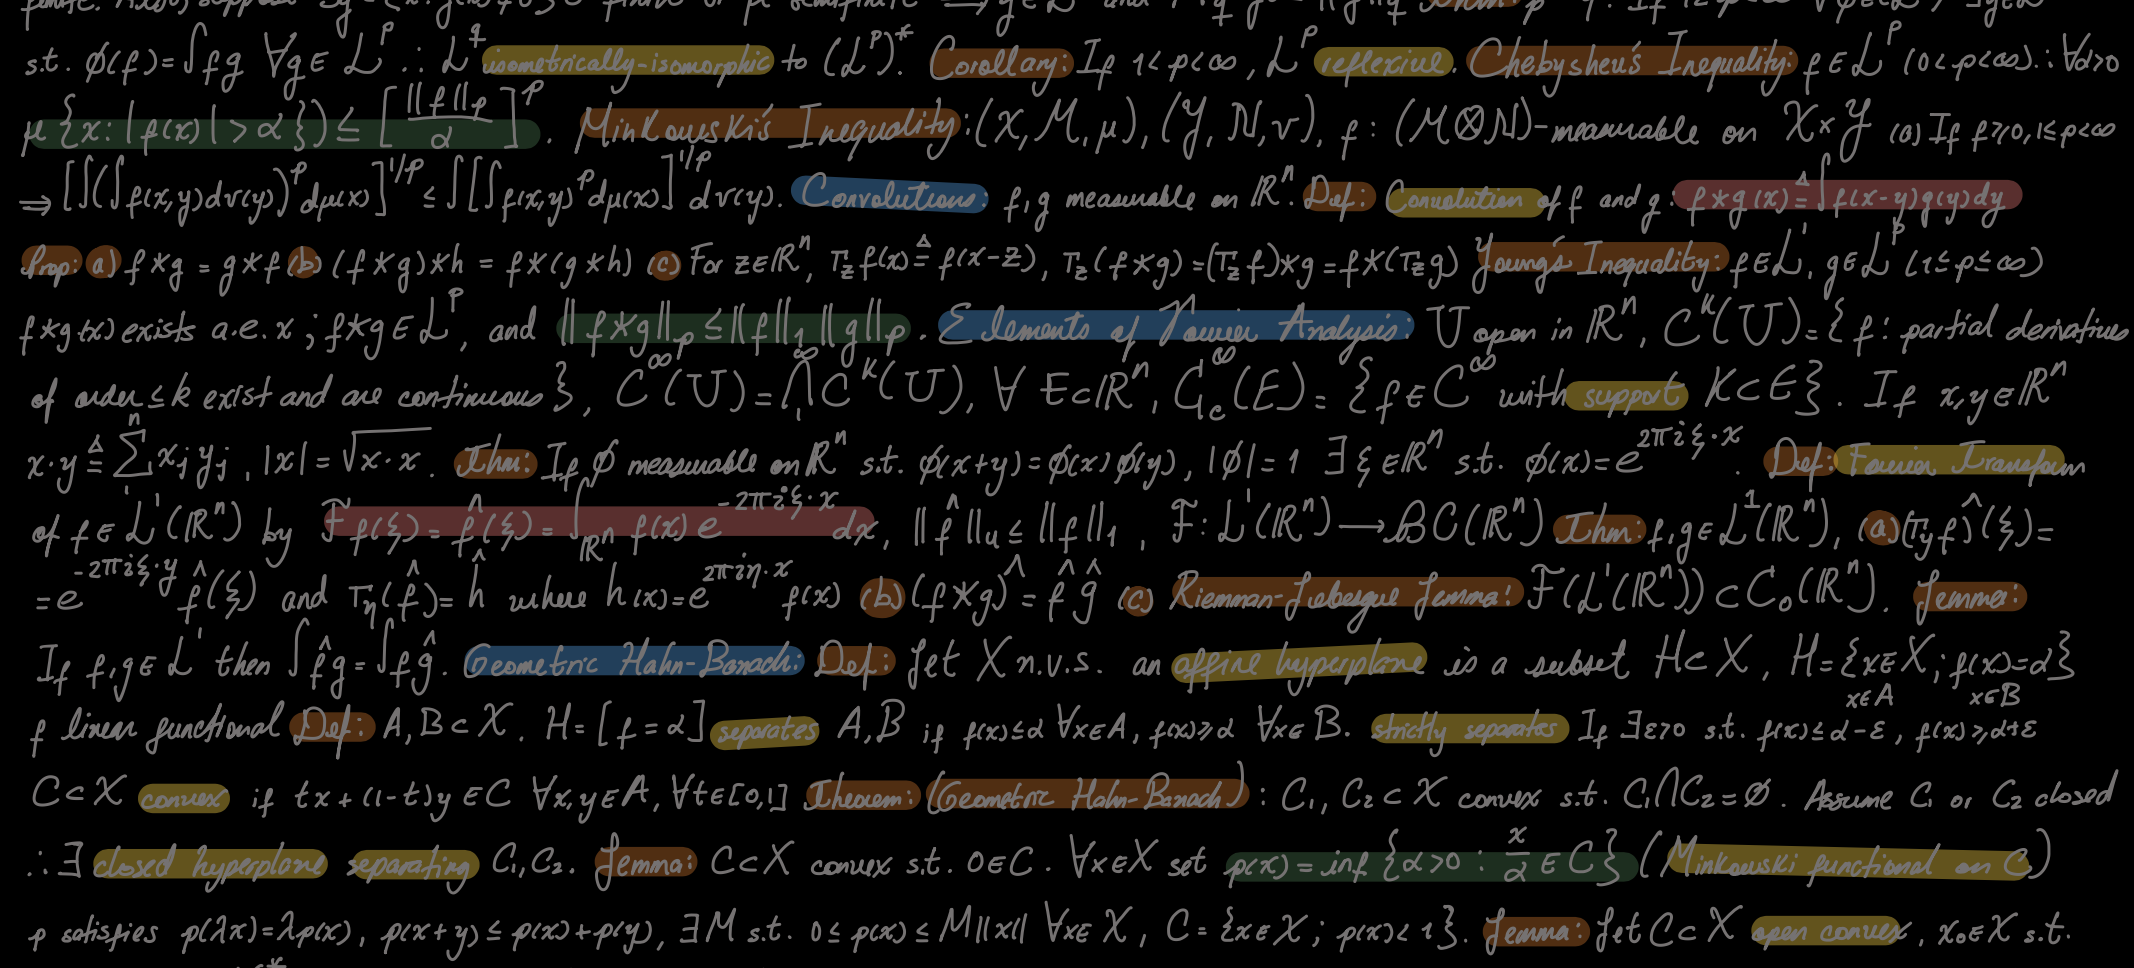 s.t. ϕ(f)=∫fg ∀g∈L^p ∴ L^q isometrically-isomorphic to (L^p)*. Corollary: If 1<p<∞, L^p reflexive. Chebyshev's Inequality: f∈L^p (0<p<∞). ∴ ∀α>0
μ{x: |f(x)|>α}) ≤ [‖f‖_p/α]^p. Minkowski's Inequality: (X,M,μ), (Y,N,ν), f: (M⊗N)-measurable on X×Y (a) If f≥0, 1≤p<∞
⇒ [∫(∫f(x,y)dν(y))^p dμ(x)]^{1/p} ≤ ∫[∫f(x,y)^p dμ(x)]^{1/p} dν(y). Convolutions: f,g measurable on ℝ^n. Def: Convolution of f and g: f*g(x) ≜ ∫f(x-y)g(y)dy
Prop: a) f*g = g*f (b) (f*g)*h = f*(g*h) (c) For z∈ℝ^n, τ_z f(x) ≜ f(x-z), τ_z(f*g)=(τ_z f)*g=f*(τ_z g) Young's Inequality: f∈L^1, g∈L^p (1≤p≤∞)
f*g(x) exists a.e. x; f*g∈L^p, and ‖f*g‖_p ≤ ‖f‖_1 ‖g‖_p. Elements of Fourier Analysis: U open in ℝ^n, C^k(U)={f: partial derivatives
of order ≤k exist and are continuous}, C^∞(U)=⋂_1^∞ C^k(U), ∀ E⊂ℝ^n, C_c^∞(E)={f∈C^∞ with support K⊂E}. If x,y∈ℝ^n
x·y ≜ Σ_1^n x_j y_j, |x|=√x·x. Thm: If ϕ measurable on ℝ^n s.t. ϕ(x+y)=ϕ(x)ϕ(y), |ϕ|=1 ∃ξ∈ℝ^n s.t. ϕ(x)=e^{2πiξ·x}. Def: Fourier Transform
of f∈L^1(ℝ^n) by Ff(ξ)=f̂(ξ)=∫_{ℝ^n} f(x)e^{-2πiξ·x}dx, ‖f̂‖_u ≤ ‖f‖_1, F: L^1(ℝ^n)⟶BC(ℝ^n) Thm: f,g∈L^1(ℝ^n), (a) (τ_y f)^(ξ)=
=e^{-2πiξ·y} f̂(ξ) and τ_η(f̂)=ĥ where h(x)=e^{2πiη·x}f(x) (b) (f*g)^=f̂ĝ (c) Riemman-Lebesgue Lemma: F(L^1(ℝ^n))⊂C_0(ℝ^n). Lemma:
If f,g∈L^1 then ∫f̂g=∫fĝ. Geometric Hahn-Banach: Def: Let X n.v.s. an affine hyperplane is a subset H⊂X, H={x∈X; f(x)=α}
f linear functional Def: A,B⊂X. H=[f=α] separates A,B if f(x)≤α ∀x∈A, f(x)≥α ∀x∈B. strictly separates If ∃ε>0 s.t. f(x)≤α-ε x∈A, f(x)≥α+ε x∈B
C⊂X convex if tx+(1-t)y∈C ∀x,y∈A, ∀t∈[0,1] Theorem: (Geometric Hahn-Banach): C₁, C₂⊂X convex s.t. C₁∩C₂=∅. Assume C₁ or C₂ closed
∴ ∃ closed hyperplane separating C₁,C₂. Lemma: C⊂X convex s.t. 0∈C. ∀x∈X set p(x)=inf{α>0: x/α∈C} (Minkowski functional on C)
p satisfies p(λx)=λp(x), p(x+y)≤p(x)+p(y), ∃M s.t. 0≤p(x)≤M‖x‖ ∀x∈X, C={x∈X; p(x)<1}. Lemma: Let C⊂X open convex, x₀∈X s.t.